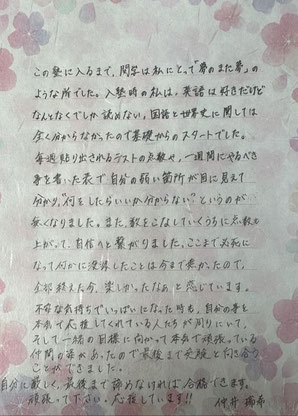 この塾に入るまで、関学は私にとって"夢のまた夢"の
ような所でした。入塾時の私は、英語は好きだけど
なんとなくでしか読めない、国語と世界史に関しては
全く分からなかったので基礎からのスタートでした。
毎週貼り出されるテストの点数や、一週間にやるべき
事を書いた表で自分の弱い箇所が目に見えて
分かり、"何をしたらいいか分からない"というのが
無くなりました。また、数をこなしていくうちに点数も
上がって、自信へと繋がりました。ここまで必死に
なって何かに没頭したことは今まで無かったので、
全部終えた今、楽しかったなぁと感じています。
不安な気持ちでいっぱいになった時も、自分の事を
本気で応援してくれている人たちが周りにいて、
そして一緒の目標に向かって本気で頑張っている
仲間の姿があったので最後まで受験と向き合う
ことができました。
自分に厳しく、最後まで諦めなければ合格できます。
頑張って下さい。応援しています!!
仲井